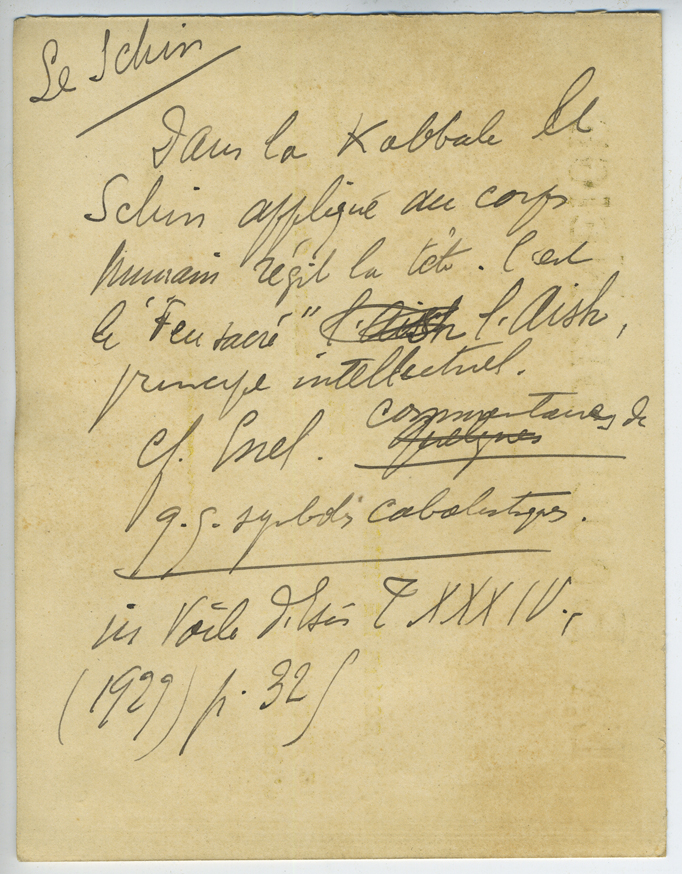 Le Schin
Dans la Kabbale le
Schin appliqué au corps
humain régit la tête. C'est
le "Feu sacré" l'Aish l'Aish,
principe intellectuel.
cf. Enel. Quelques commentaires de
q.q. symboles cabalistiques.
in Voile d'Isis T XXXIV.,
(1929) p. 325